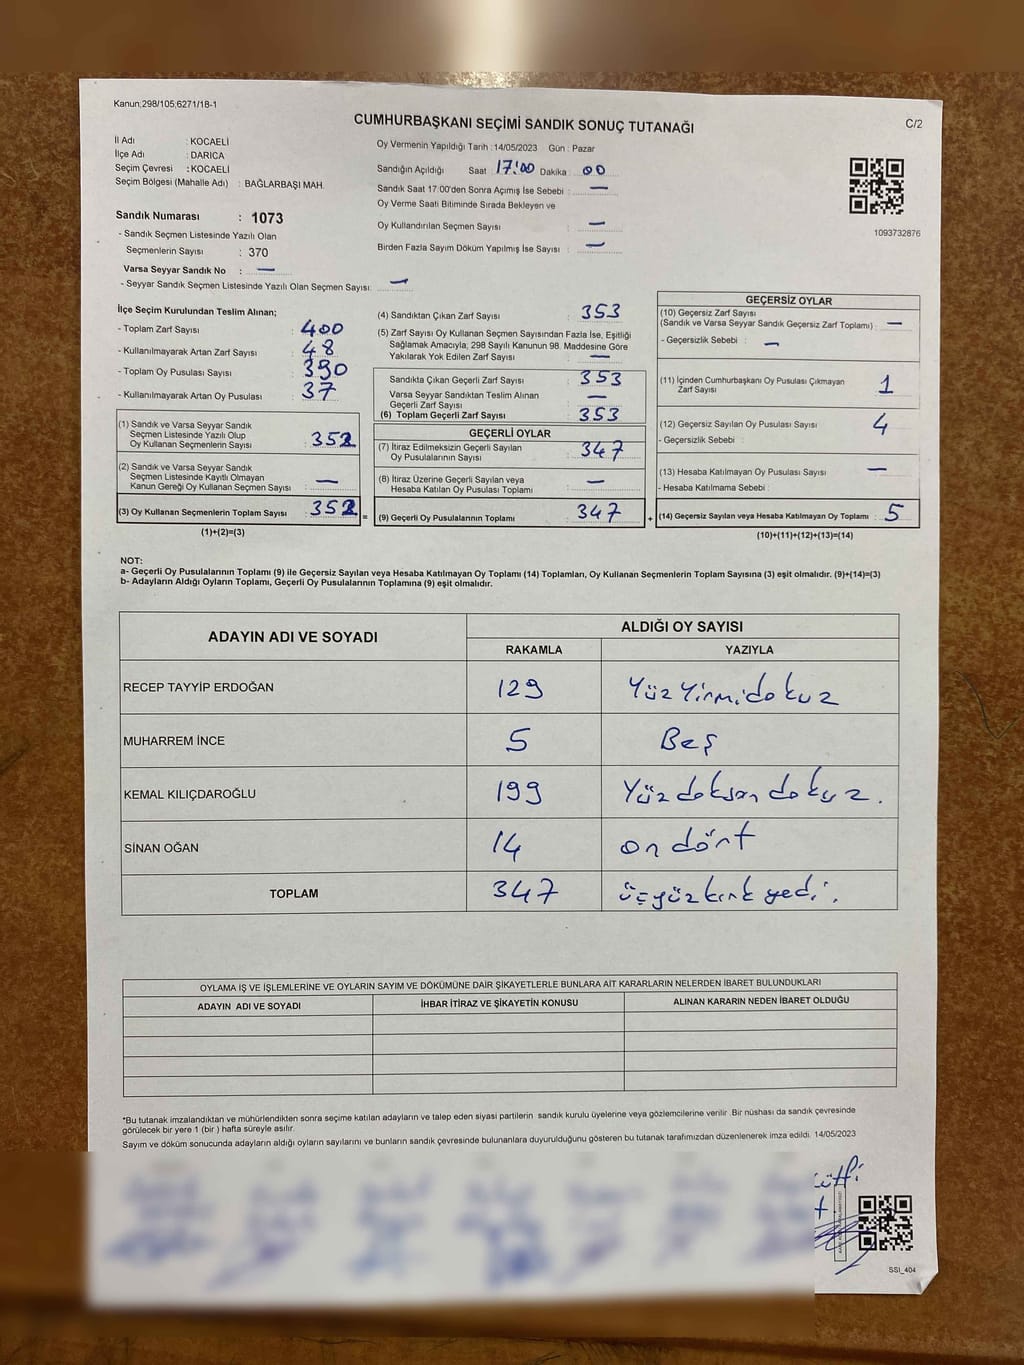 Kanun;298/105;6271/18-1
C/2
CUMHURBAŞKANI SEÇİMİ SANDIK SONUÇ TUTANAĞI
İl Adı : KOCAELİ
İlçe Adı : DARICA
Seçim Çevresi : KOCAELİ
Seçim Bölgesi (Mahalle Adı) : BAĞLARBAŞI MAH.
Sandık Numarası : 1073
- Sandık Seçmen Listesinde Yazılı Olan
Seçmenlerin Sayısı : 370
Varsa Seyyar Sandık No : —
- Seyyar Sandık Seçmen Listesinde Yazılı Olan Seçmen Sayısı: —
Oy Vermenin Yapıldığı Tarih : 14/05/2023 Gün : Pazar
Sandığın Açıldığı Saat : 17:00 Dakika : 00
Sandık Saat 17:00'den Sonra Açımış İse Sebebi : —
Oy Verme Saati Bitiminde Sırada Bekleyen ve
Oy Kullandırılan Seçmen Sayısı : —
Birden Fazla Sayım Döküm Yapılmış İse Sayısı : —
1093732876
İlçe Seçim Kurulundan Teslim Alınan;
- Toplam Zarf Sayısı : 400
- Kullanılmayarak Artan Zarf Sayısı : 48
- Toplam Oy Pusulası Sayısı : 390
- Kullanılmayarak Artan Oy Pusulası : 37
(1) Sandık ve Varsa Seyyar Sandık
Seçmen Listesinde Yazılı Olup
Oy Kullanan Seçmenlerin Sayısı : 352
(2) Sandık ve Varsa Seyyar Sandık
Seçmen Listesinde Kayıtlı Olmayan
Kanun Gereği Oy Kullanan Seçmen Sayısı : —
(3) Oy Kullanan Seçmenlerin Toplam Sayısı : 352
(1)+(2)=(3)
(4) Sandıktan Çıkan Zarf Sayısı : 353
(5) Zarf Sayısı Oy Kullanan Seçmen Sayısından Fazla İse, Eşitliği
Sağlamak Amacıyla, 298 Sayılı Kanunun 98. Maddesine Göre
Yakılarak Yok Edilen Zarf Sayısı : —
Sandıkta Çıkan Geçerli Zarf Sayısı : 353
Varsa Seyyar Sandıktan Teslim Alınan
Geçerli Zarf Sayısı : —
(6) Toplam Geçerli Zarf Sayısı : 353
GEÇERLİ OYLAR
(7) İtiraz Edilmeksizin Geçerli Sayılan
Oy Pusulalarının Sayısı : 347
(8) İtiraz Üzerine Geçerli Sayılan veya
Hesaba Katılan Oy Pusulası Toplamı : —
= (9) Geçerli Oy Pusulalarının Toplamı : 347
GEÇERSİZ OYLAR
(10) Geçersiz Zarf Sayısı
(Sandık ve Varsa Seyyar Sandık Geçersiz Zarf Toplamı) : —
- Geçersizlik Sebebi : —
(11) İçinden Cumhurbaşkanı Oy Pusulası Çıkmayan
Zarf Sayısı : 1
(12) Geçersiz Sayılan Oy Pusulası Sayısı : 4
- Geçersizlik Sebebi :
(13) Hesaba Katılmayan Oy Pusulası Sayısı : —
- Hesaba Katılmama Sebebi :
+ (14) Geçersiz Sayılan veya Hesaba Katılmayan Oy Toplamı : 5
(10)+(11)+(12)+(13)=(14)
NOT:
a- Geçerli Oy Pusulalarının Toplamı (9) ile Geçersiz Sayılan veya Hesaba Katılmayan Oy Toplamı (14) Toplamları, Oy Kullanan Seçmenlerin Toplam Sayısına (3) eşit olmalıdır. (9)+(14)=(3)
b- Adayların Aldığı Oyların Toplamı, Geçerli Oy Pusulalarının Toplamına (9) eşit olmalıdır.
ADAYIN ADI VE SOYADI
ALDIĞI OY SAYISI
RAKAMLA YAZIYLA
RECEP TAYYİP ERDOĞAN 129 Yüz Yirmi dokuz
MUHARREM İNCE 5 Beş
KEMAL KILIÇDAROĞLU 199 Yüz doksan dokuz.
SİNAN OĞAN 14 on dört
TOPLAM 347 üçyüz kırk yedi.
OYLAMA İŞ VE İŞLEMLERİNE VE OYLARIN SAYIM VE DÖKÜMÜNE DAİR ŞİKAYETLERLE BUNLARA AİT KARARLARIN NELERDEN İBARET BULUNDUKLARI
ADAYIN ADI VE SOYADI İHBAR İTİRAZ VE ŞİKAYETİN KONUSU ALINAN KARARIN NEDEN İBARET OLDUĞU
*Bu tutanak imzalandıktan ve mühürlendikten sonra seçime katılan adayların ve talep eden siyasi partilerin sandık kurulu üyelerine veya gözlemcilerine verilir. Bir nüshası da sandık çevresinde
görülecek bir yere 1 (bir ) hafta süreyle asılır.
Sayım ve döküm sonucunda adayların aldığı oyların sayılarını ve bunların sandık çevresinde bulunanlara duyurulduğunu gösteren bu tutanak tarafımızdan düzenlenerek imza edildi. 14/05/2023
SSI_404